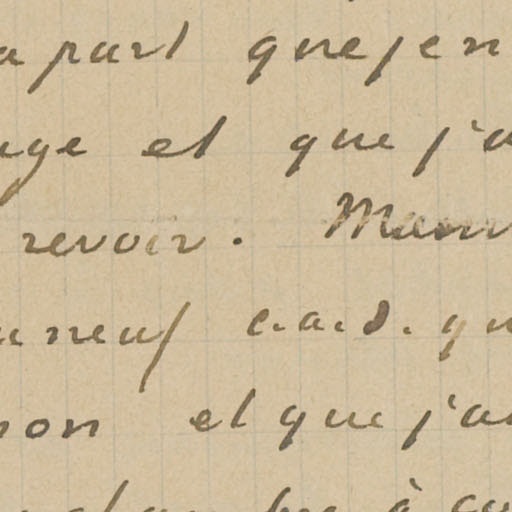 a part que j'en
age et que j'a
revoir. Mam
neuf c.a.d. qu
non et que j'a
à